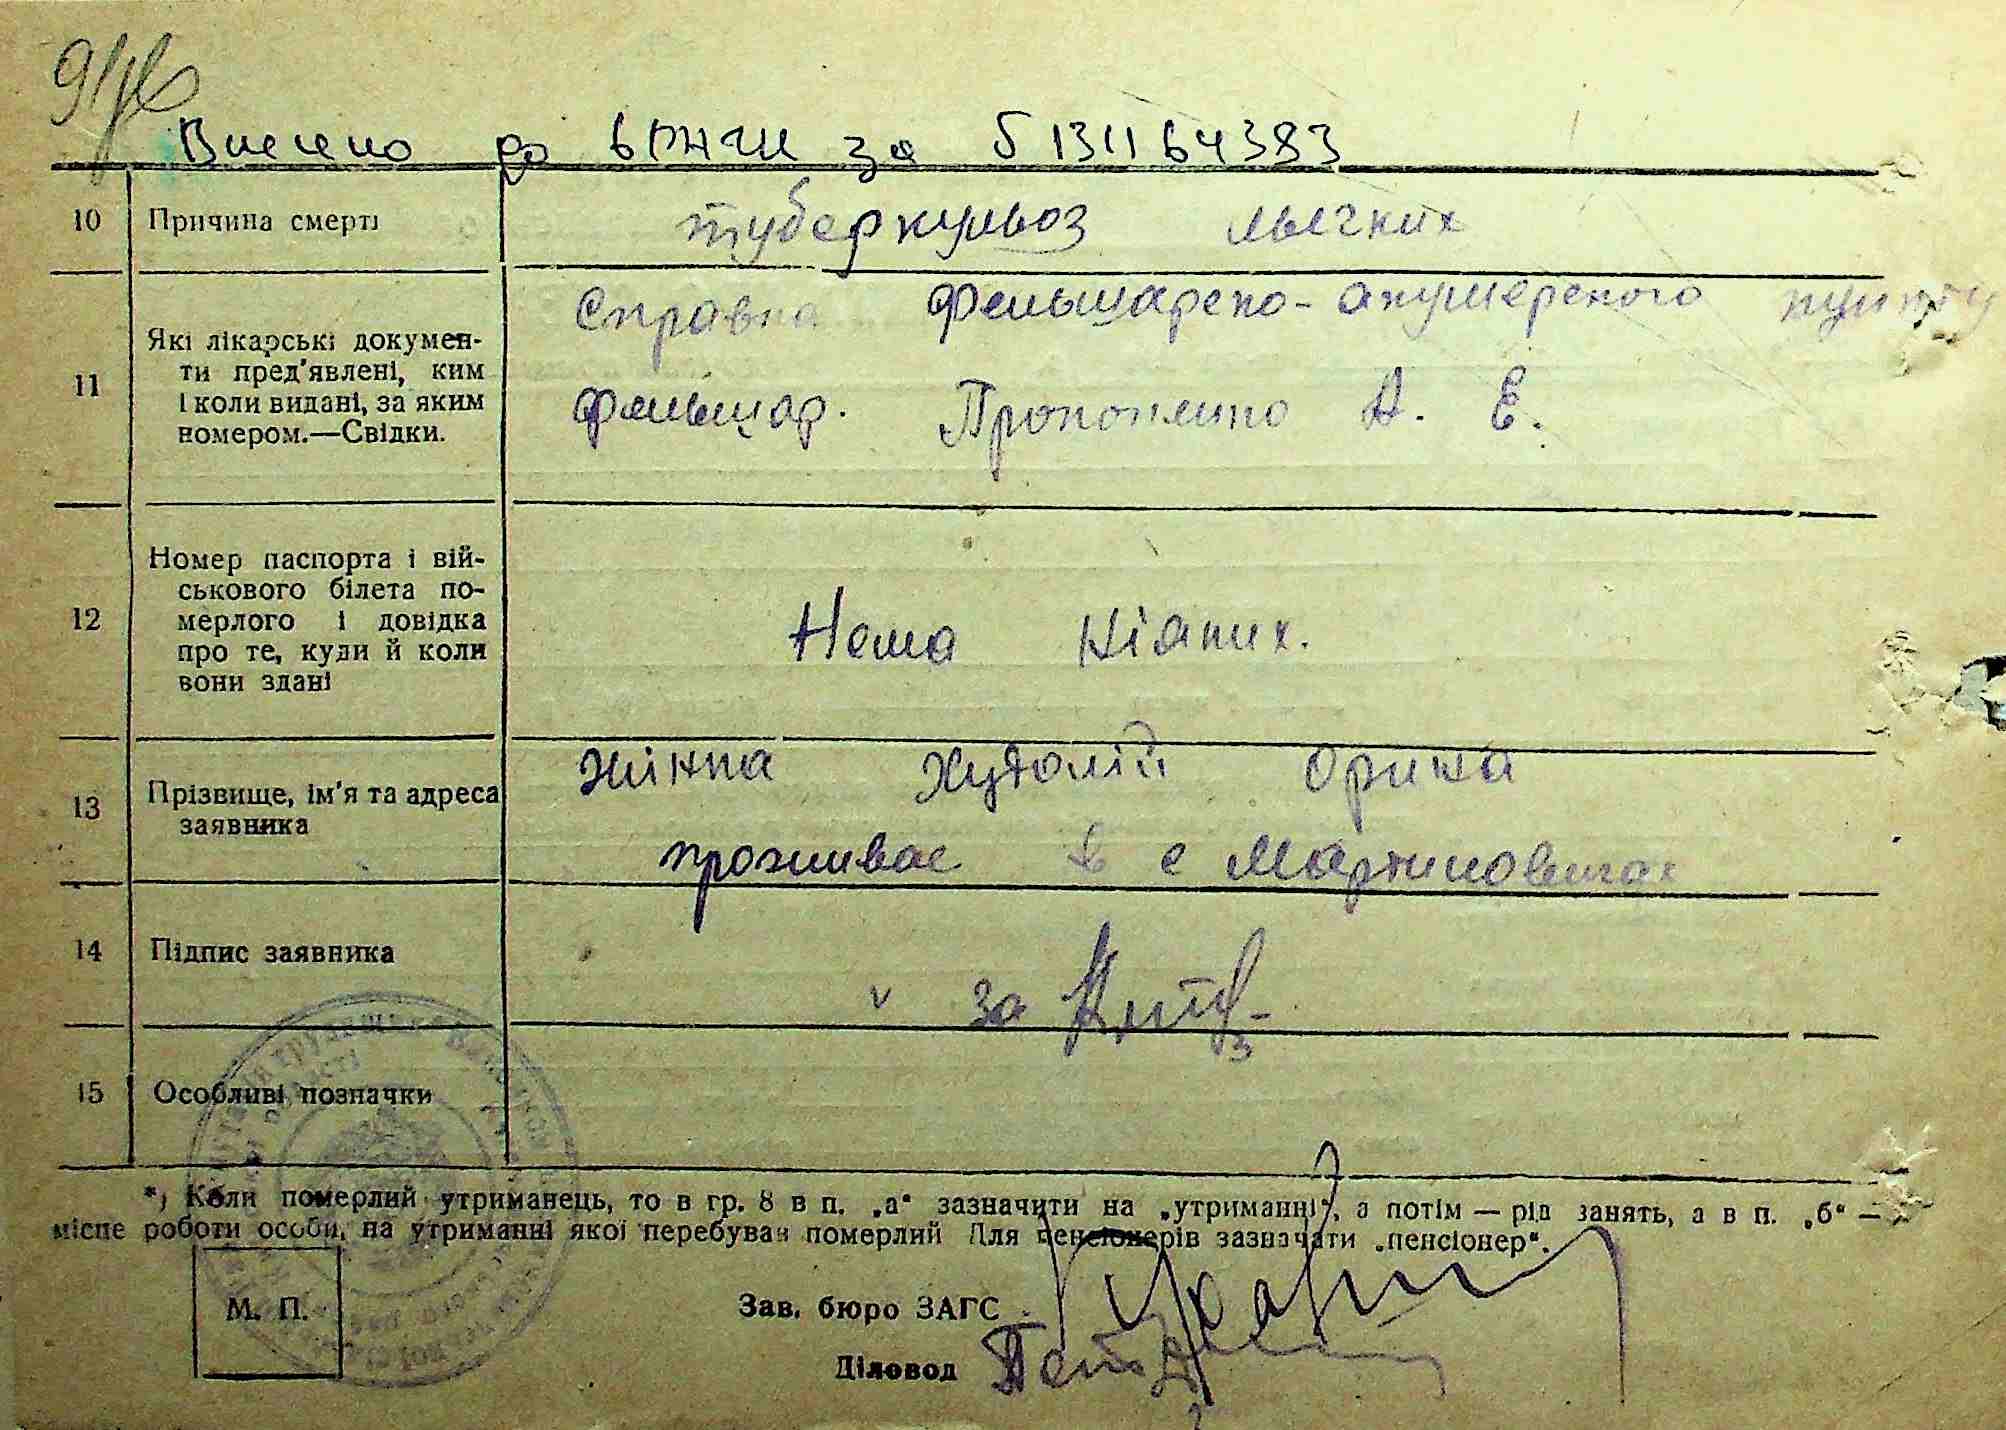 Внесено до ВРАЦГ за 5131164383
10 Причина смерті туберкульоз льегких
11 Які лікарські докумен-
ти пред'явлені, ким
і коли видані, за яким
номером.—Свідки.
Справка Фельшарско-акушерского пункту
фельшар. Прокопенко А. Е.
12 Номер паспорта і вій-
ськового білета по-
мерлого і довідка
про те, куди й коли
вони здані
Нема ніяких.
13 Прізвище, ім'я та адреса
заявника
жінка Худолій Орина
проживає в с Мартиновичах
14 Підпис заявника за
15 Особливі позначки
*) Коли померлий утриманець, то в гр. 8 в п. „а“ зазначити на „утриманні“, а потім — рід занять, а в п. „б“ —
місце роботи особи, на утриманні якої перебував померлий Для пенсіонерів зазначати „пенсіонер“.
М. П.
Зав. бюро ЗАГС
Діловод